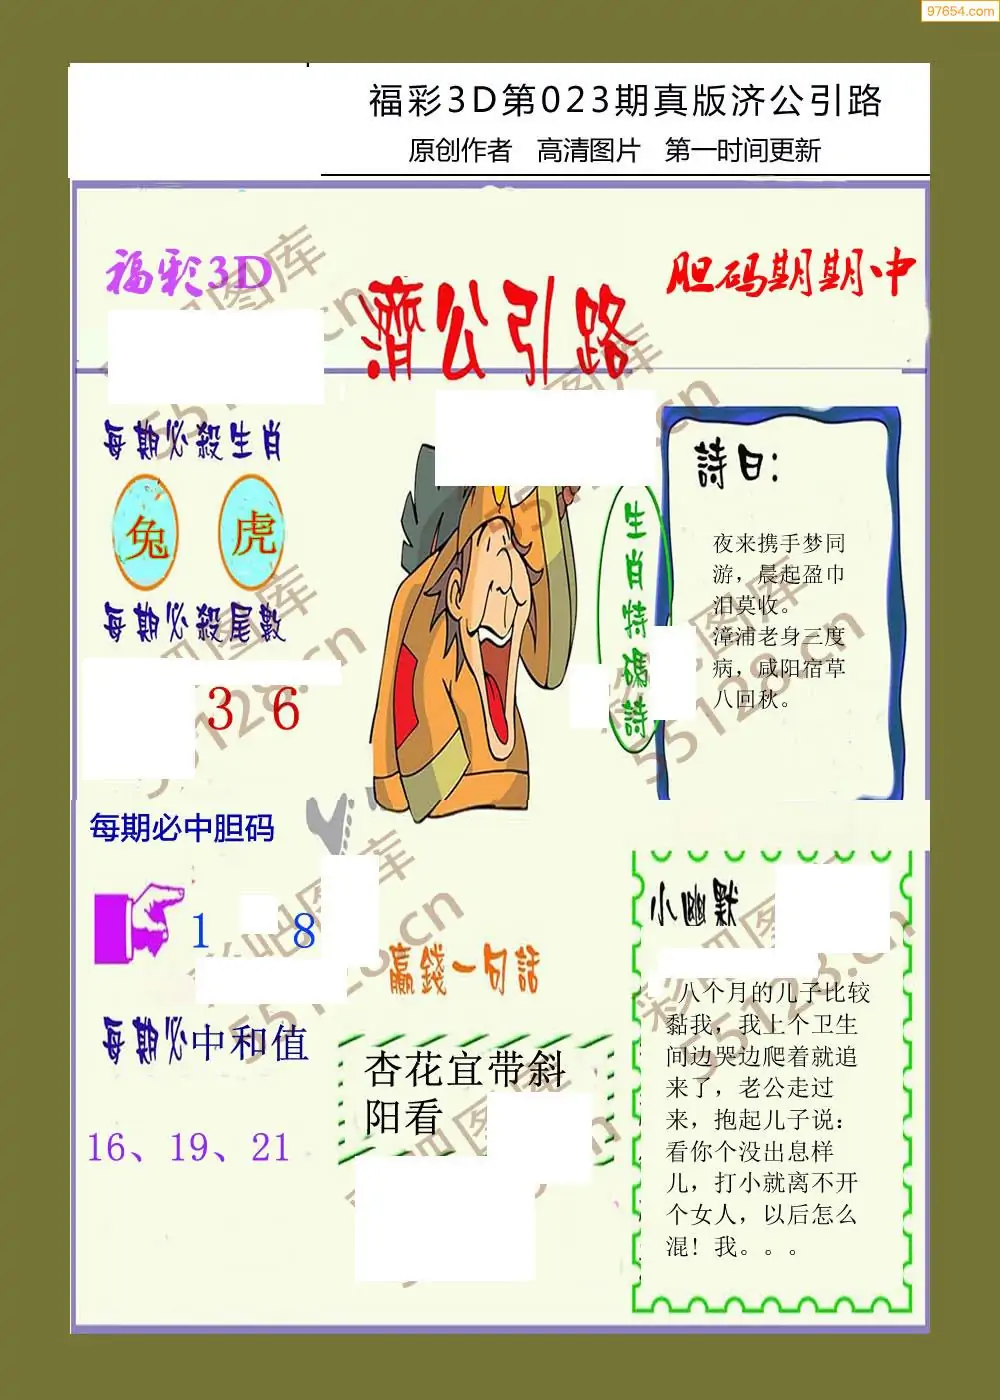 97654.com
福彩3D第023期真版济公引路
原创作者 高清图片 第一时间更新
福彩3D
胆码期期中
濟公引路
每期必殺生肖
兔 虎
每期必殺尾數
3 6
生肖特碼詩
詩曰：
夜来携手梦同
游，晨起盈巾
泪莫收。
漳浦老身三度
病，咸阳宿草
八回秋。
每期必中胆码
1 8
每期必中和值
16、19、21
赢錢一句話
杏花宜带斜
阳看
小幽默
八个月的儿子比较
黏我，我上个卫生
间边哭边爬着就追
来了，老公走过
来，抱起儿子说：
看你个没出息样
儿，打小就离不开
个女人，以后怎么
混！我。。。
55128.cn